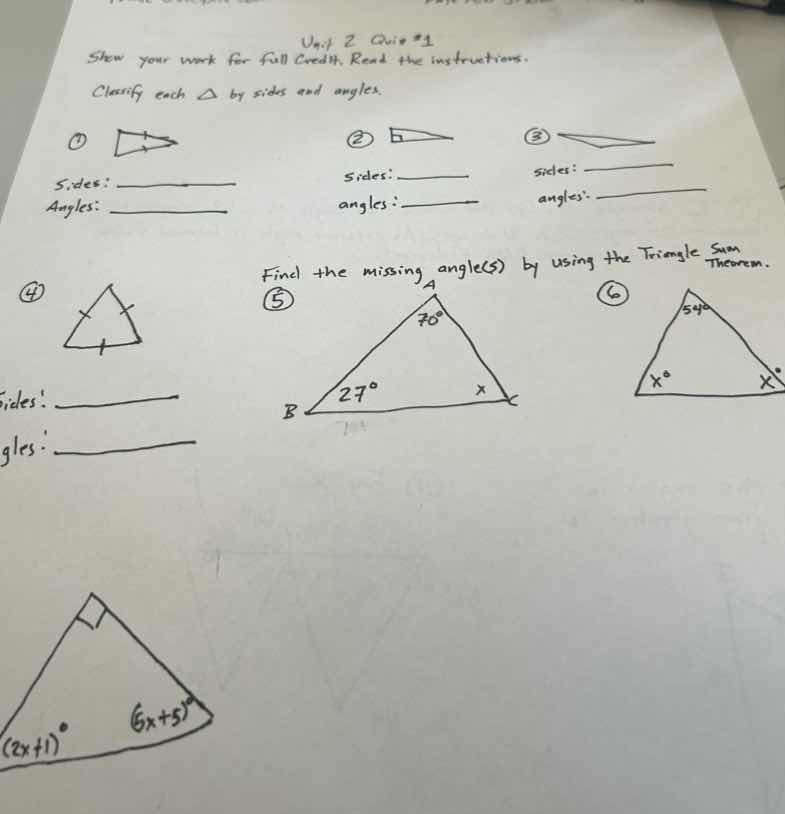 Unit 2 Quiz #1
Show your work for full Credit. Read the instructions.
Classify each △ by sides and angles.
① ② ③
Sides: sides: sides:
Angles: angles: angles:
Find the missing angle(s) by using the Triangle Sum Theorem.
④ ⑤ ⑥
A
70° 54°
27° x x° x°
B C
ides:
gles:
(2x+1)° (5x+5)°